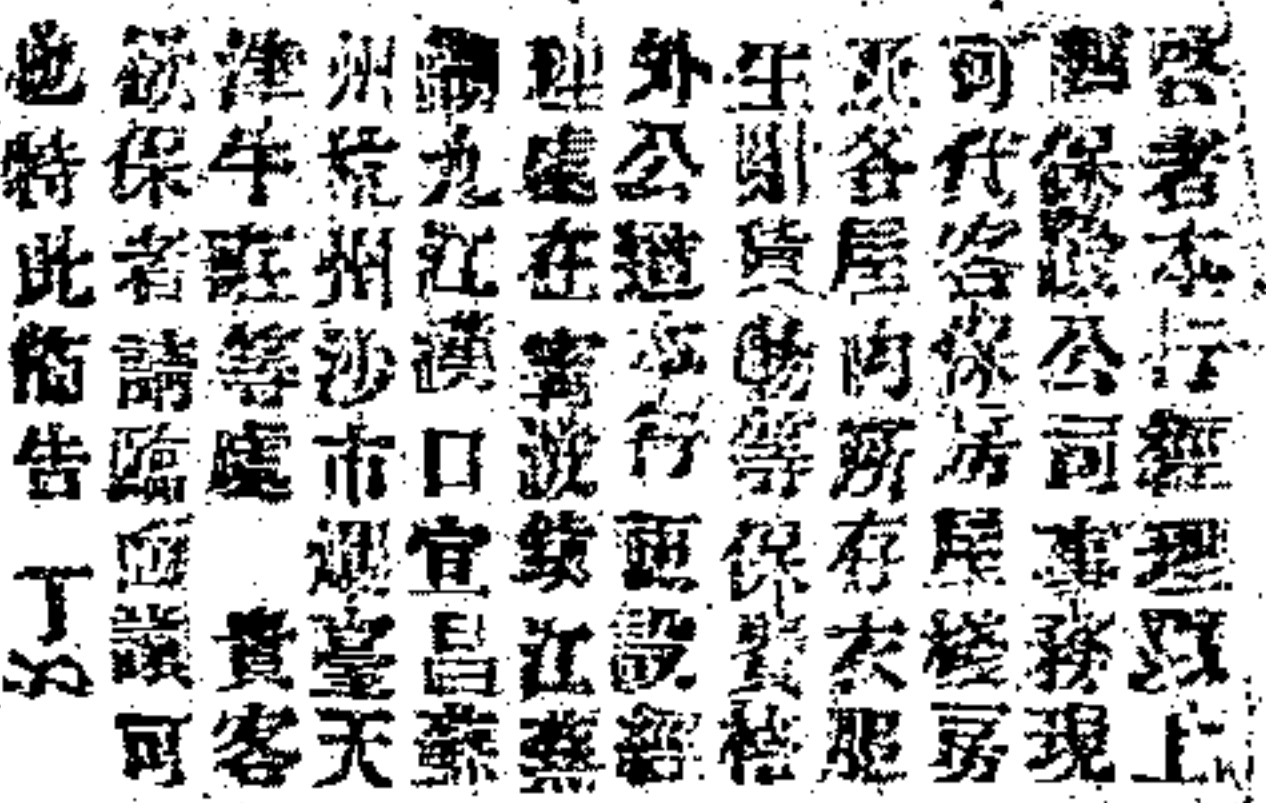 啓者本行經理以上
保險公司事務現
可代客保房屋棧房
各屋内所存衣服
生財貨物等保費格
外公道本行並設經
理處在寧波鎮江蕪
湖九江漢口宜昌蘇
州杭州沙市烟臺天
津牛莊等處 貴客
欲保者請臨面議可
也特此佈告 丁